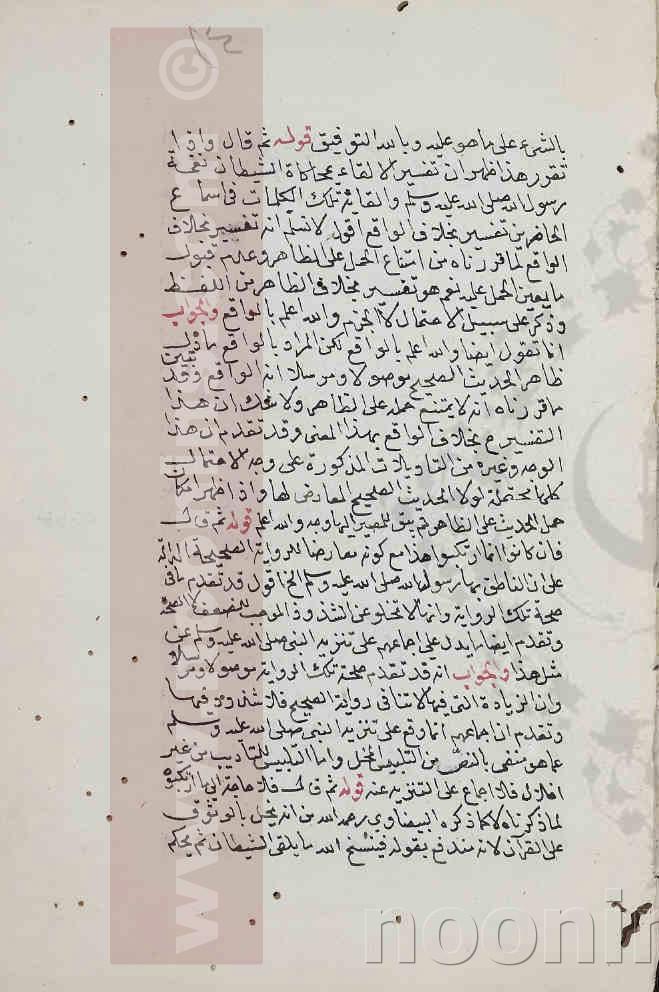 بالشيء على ما هو عليه وبالله التوفيق قوله ثم قال واذا
تقرر هذا ظهر ان تفسير الالقاء بمحاكاة الشيطان نغمة
رسول الله صلى الله عليه وسلم والقائه تلك الكلمات في اسماع
الحاضرين تفسير بخلاف الواقع اقول لا نسلم انه تفسير بخلاف
الواقع لما قررناه من امتناع الحمل على الظاهر وعدم قبول
ما يعين الحمل عليه نعم هو تفسير بخلاف الظاهر من اللفظ
وذكر على سبيل الاحتمال لا الجزم والله اعلم بالواقع والجواب
انا نقول ايضا والله اعلم بالواقع لكن المراد بالواقع ما دل
ظاهر الحديث الصحيح موصولا ومرسلا انه الواقع وقد تبين
ما قررناه انه لا يمتنع حمله على الظاهر ولا شك ان هذا
التفسير ع بخلاف الواقع بهذا المعنى وقد تقدم ان هذا
الوجه وغيره من التاويلات المذكورة على وجه الاحتمال
كلها محتملة لولا الحديث الصحيح المعارض لها واذا ظهر امكان
حمل الحديث على الظاهر لم يبق للمصير اليها وجه والله اعلم قوله ثم قال
فان كانوا انما ارتكبوا هذا مع كونه معارضا للرواية الصحيحة الدالة
على ان الناطق بها رسول الله صلى الله عليه وسلم الخ اقول قد تقدم ما في
صحة تلك الرواية وانها لا تخلو عن الشذوذ الموجب للضعف لا الصحة
وتقدم ايضا ما يدل على اجماعهم على تنزيه النبي صلى الله عليه وسلم عن
مثل هذا والجواب انه قد تقدم صحة تلك الرواية موصولا ومرسلا
وان الزيادة التي فيها لا تنافي رواية الصحيح فلا شذوذ فيها
وتقدم ان اجماعهم انما وقع على تنزيه النبي صلى الله عليه وسلم
عما هو منفي بالنص من التلبيس المخل واما التلبيس للتاديب من غير
اخلال فلا اجماع على التنزيه عنه قوله ثم قال فلا حاجة الى ما ارتكبوه
لما ذكرناه لا كما ذكره البيضاوي رحمه الله من انه يخل بالوثوق
على القرآن لانه مندفع بقوله فينسخ الله ما يلقى الشيطان ثم يحكم
www.noor
©
noonir